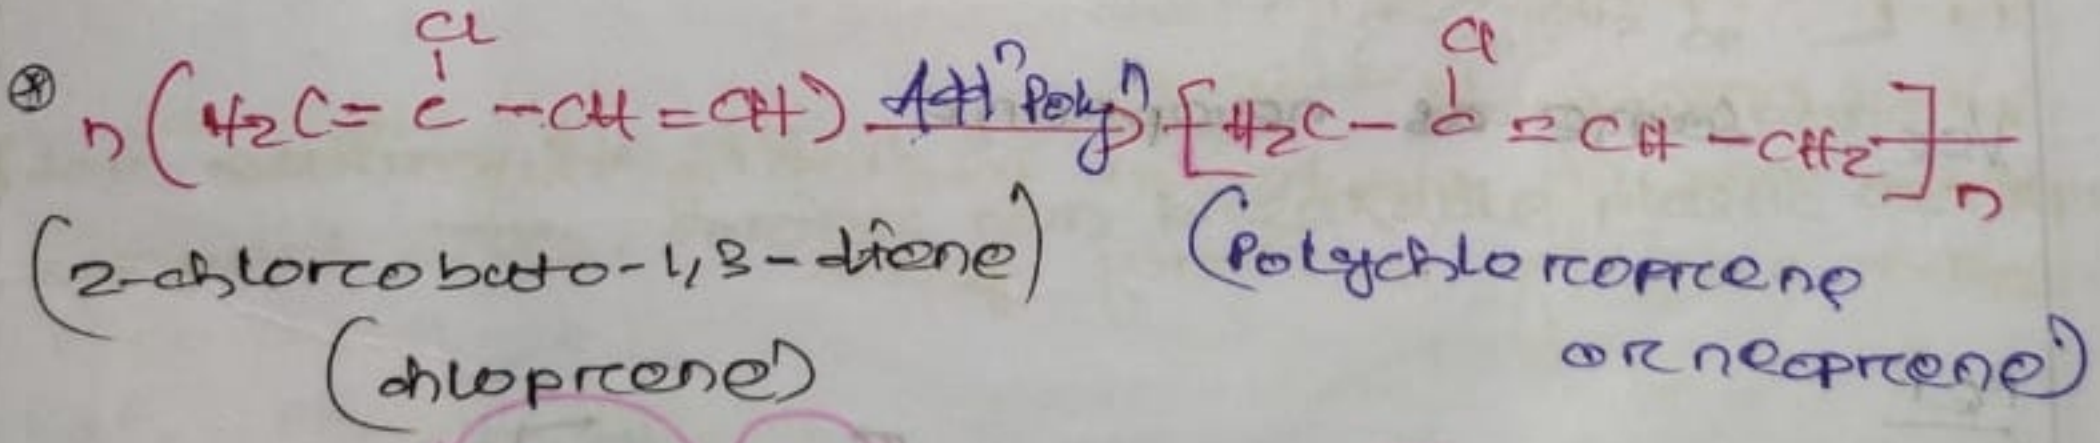 Cl Cl
⊛ n(H2C=C-CH=CH) Addⁿ Polyⁿ [H2C-C=CH-CH2]n
(2-chlorcobuto-1,3-diene) (Polychlorcoprcene
(chloprcene) or neoprcene)